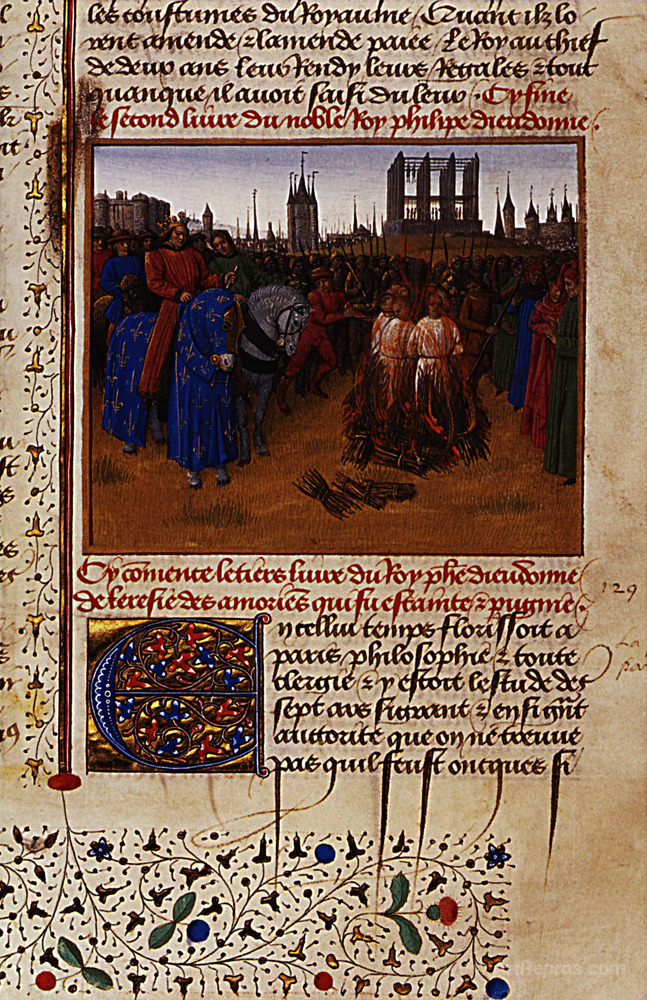 les coustumes du Royaume / Quant ilz lo
rent amende & lamende paiee / Le Roy au chief
de deux ans leur Rendy leurs Regales & tout
quanque il auoit saisi du leur . Cy fine
le second liure du noble Roy philipe dieudonne .
Cy comence le tiers liure du Roy phe dieudonne
de leresie des amories qui fu estainte & pugnie .
129
En cellui temps florissoit a
paris philosophie & toute
clergie & y estoit lestude des
sept ars si grant & en si grant
auctorite que on ne treuue
pas quil feust oncques si
Repros.com